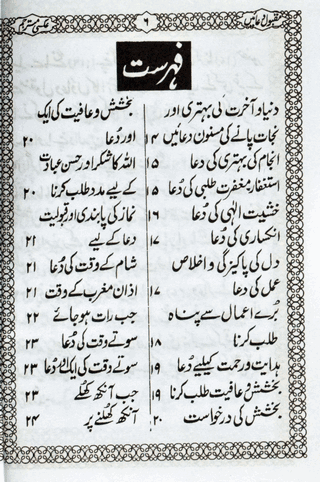 مقبول دعائیں
۶
عکسی مترجم
فہرست
دنیا و آخرت کی بہتری اور
نجات پانے کی مسنون دعائیں ۱۴
انجام کی بہتری کی دعا ۱۵
استغفار مغفرت طلبی کی دُعا ۱۵
خشیت الٰہی کی دُعا ۱۶
انکساری کی دُعا ۱۷
دل کی پاکیزگی و اخلاص
عمل کی دعا ۱۷
بُرے اعمال سے پناہ
طلب کرنا ۱۸
ہدایت ورحمت کیلئے دُعا ۱۹
بخشش و عافیت طلب کرنا ۱۹
بخشش کی درخواست ۲۰
بخشش و عافیت کی ایک
اور دُعا ۲۰
اللہ کا شکر اور حسن عبادت
کے لیے مدد طلب کرنا ۲۰
نماز کی پابندی اور قبولیت
دعا کے لیے ۲۱
شام کے وقت کی دُعا ۲۱
اذان مغرب کے وقت ۲۱
جب رات ہو جائے ۲۲
سوتے وقت کی دُعا ۲۳
سوتے وقت کی ایک اور دُعا ۲۳
جب آنکھ کھلے ۲۳
آنکھ کھلنے پر ۲۴